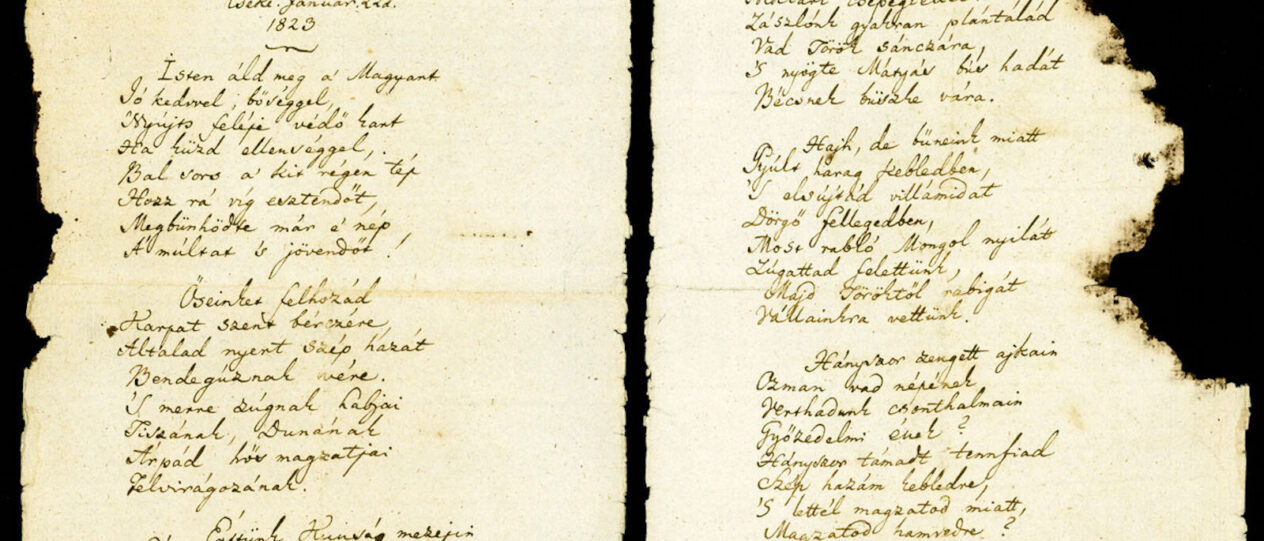 Cseke. Január 22d.
1823
Isten áld meg a' Magyart
Jó kedvvel, bőséggel,
Nyújts feléje védő kart
Ha küzd ellenséggel,
Bal sors a' kit régen tép
Hozz rá víg esztendőt,
Megbűnhödte már e' nép
A' múltat 's jövendőt!
Őseinket felhozád
Kárpát szent bérczére,
Általad nyert szép hazát
Bendegúznak vére.
'S merre zúgnak habjai
Tiszának, Dunának
Árpád hős magzatjai
Felvirágozának.
Értünk Kunság mezejin
Zászlónk gyakran plántálád
Vad Török sánczára,
'S nyögte Mátyás bús hadát
Bécsnek büszke vára.
Hajh, de bűneink miatt
Gyúlt harag kebledben,
'S elsújtád villámidat
Dörgő fellegedben,
Most rabló Mongol nyilát
Zúgattad felettünk,
Majd Töröktől rabigát
Vállainkra vettünk.
Hányszor zengett ajkain
Ozman vad népének
Verthadunk csonthalmain
Győzedelmi ének?
Hányszor támadt tennfiad
Szép hazám kebledre,
'S lettél magzatod miatt,
Magzatod hamvedre?